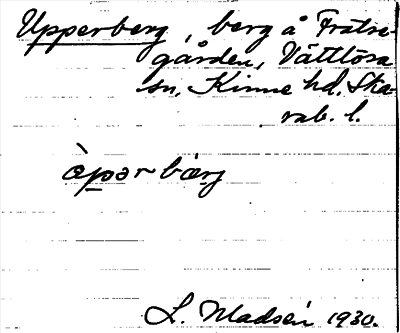 Upperberg, berg å Fratre-
gården, Vättlösa
sn, Kinne hd. Ska-
rab. l.
L. Madsén 1930.